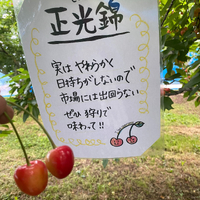 正光錦
実はやわらかく
日持ちがしないので
市場には出回らない
ぜひ狩りで
味わって!!